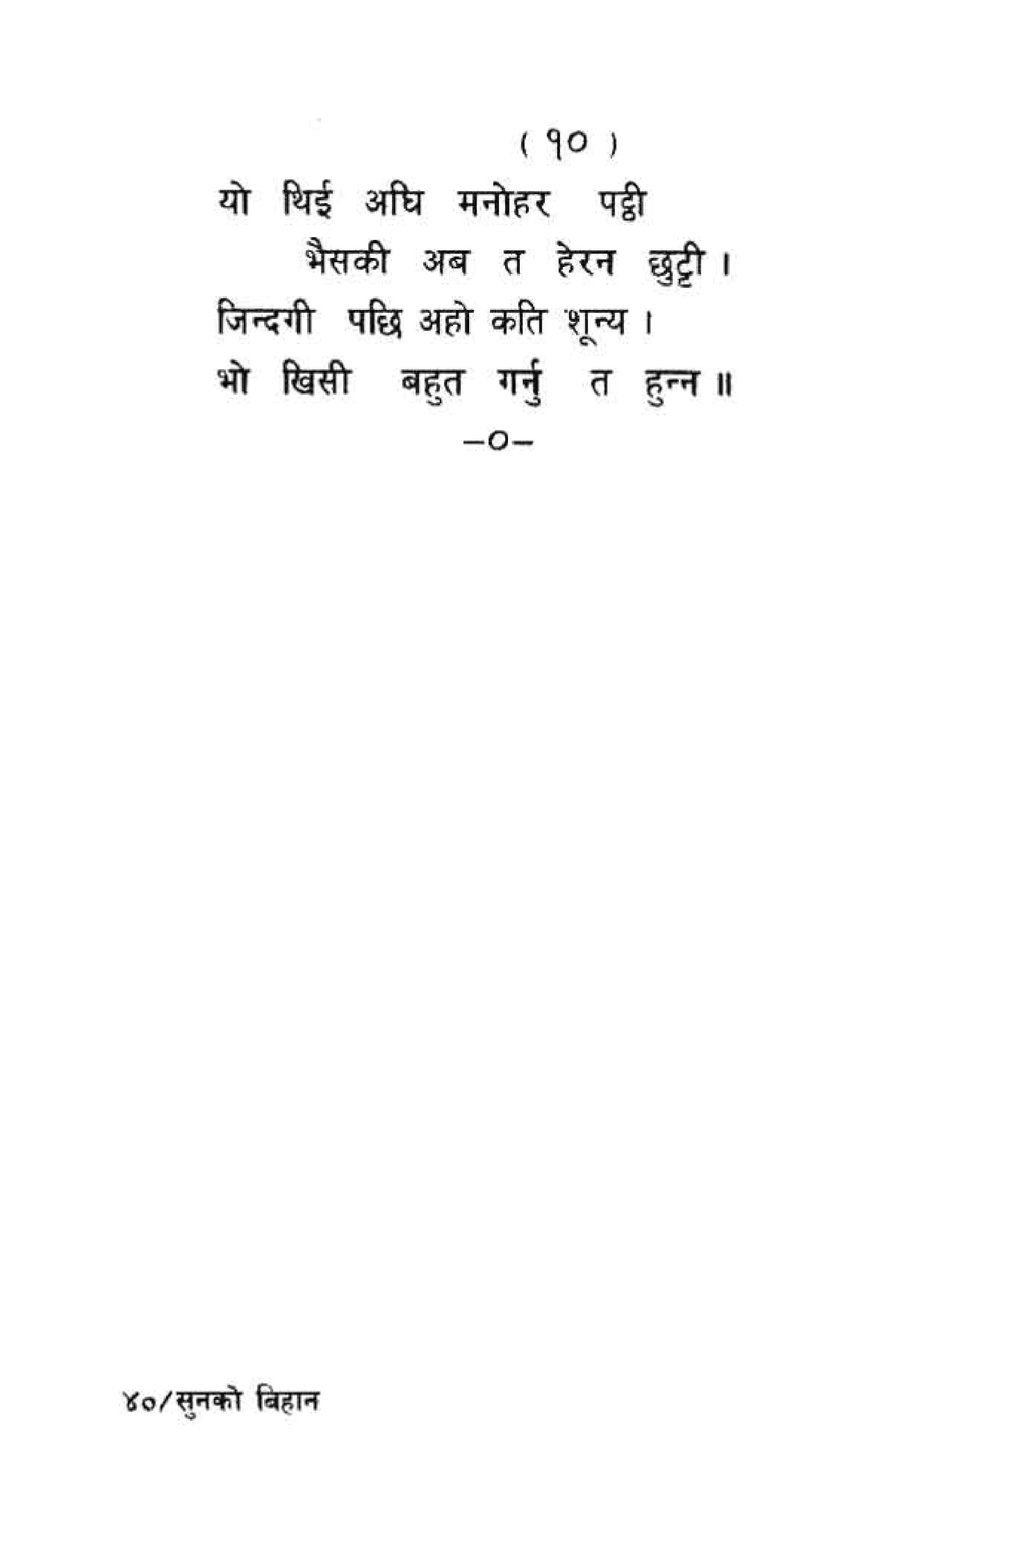 ( १० )
यो थिई अघि मनोहर पट्ठी
भैसकी अब त हेरन छुट्टी ।
जिन्दगी पछि अहो कति शून्य ।
भो खिसी बहुत गर्नु त हुन्न ॥
–०–
४०/सुनको बिहान